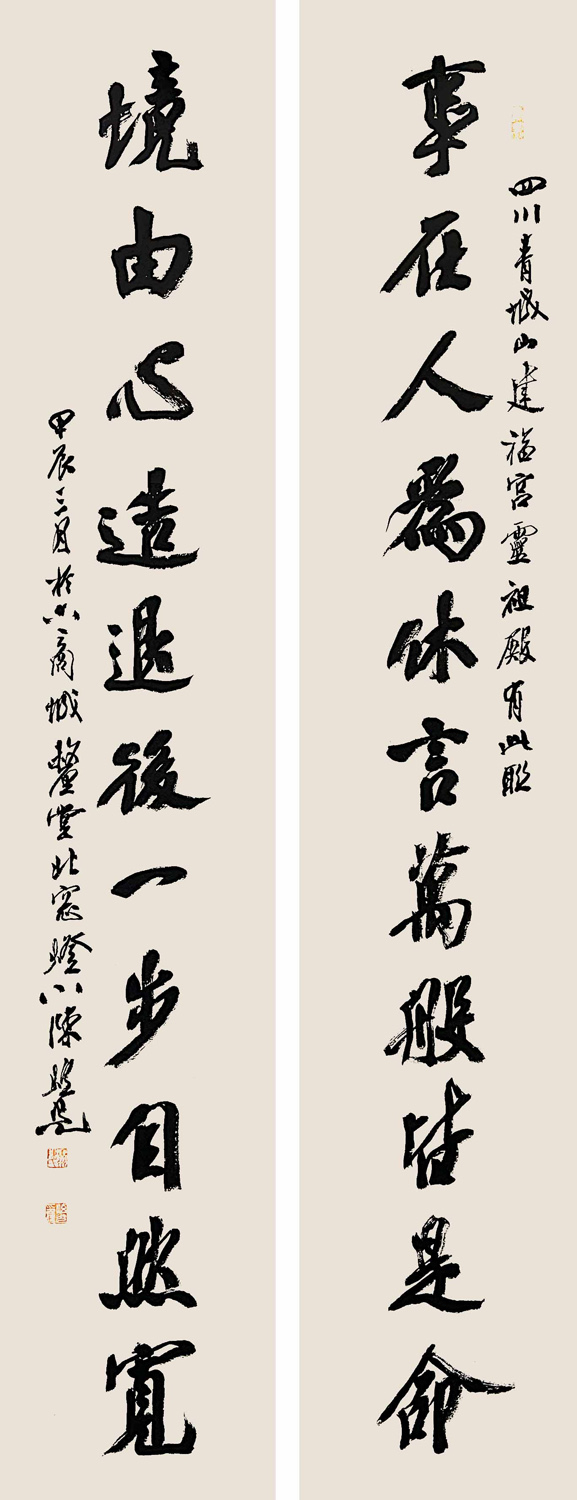 四川青城山建福宫靈祖殿有此联
事在人爲休言萬般皆是命
境由心造退後一步自然寬
甲辰三月於古商城
堂北窓燈下陳